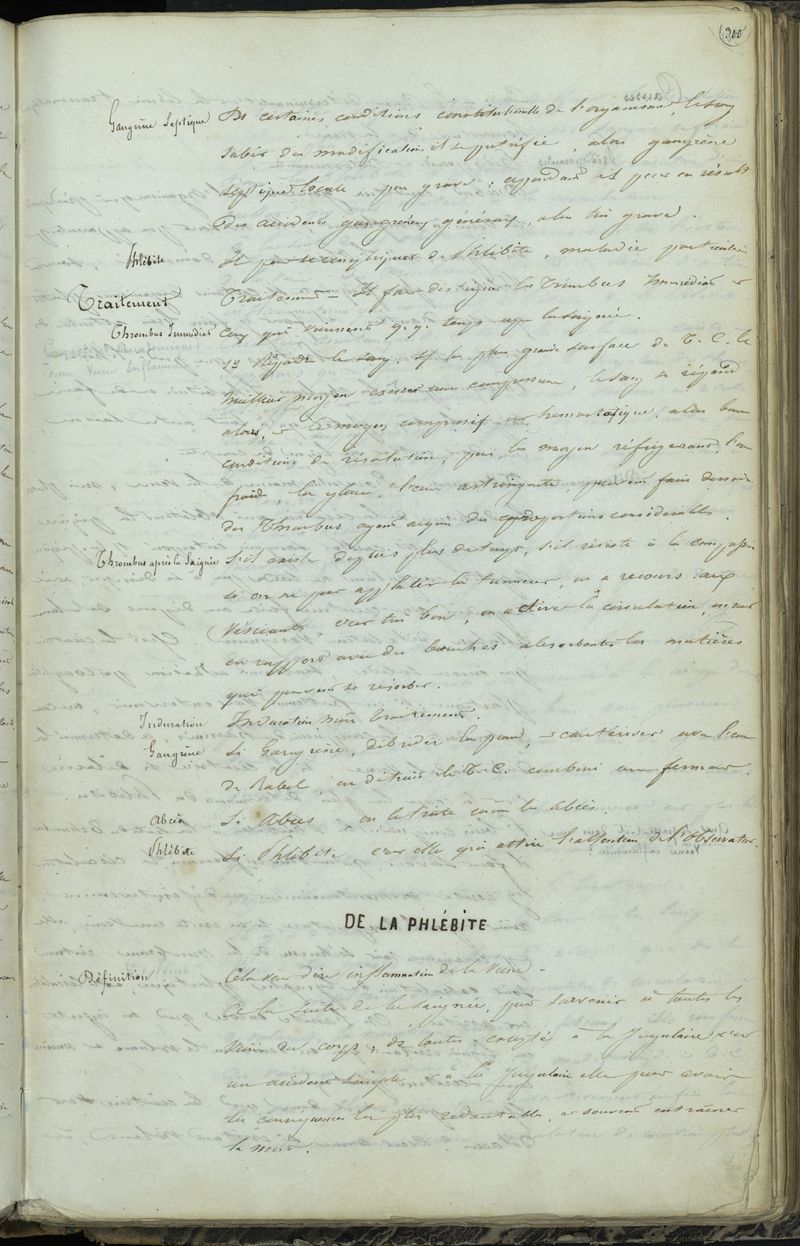 300
Gangrène Septique Ds certaines conditions constitutionelles de l'organisme, le sang
subit des modifications et se putréfie, alors gangrène
septique locale, peu grave; cependant il peut en résulter
des accidents gangréneux généraux, alors très grave.
Phlébite Il peut se compliquer de Phlébite, maladie particulière
Traitement Traitement - Il faut distinguer les Trombus Immédiats et
Thrombus Immédiat ceux qui viennent q.q. temps après la saignée.
1º Répandre le sang, sf la plus grande surface de T. C. le
meilleur moyen exercer une compression, le sang se répand
alors, le moyen compressif est hémostatique, alors bonne
conditions de résolution, puis les moyen réfrigérants, l'eau
froide, la glace, l'eau astringente, peuvent faire dissoudre
des Thrombus ayant acquis des proportions considérables.
Thrombus après la Saignée S'il existe depuis plus de temps, s'il résiste à la compression
si on ne peut applatir la tumeur, on a recours aux
vésicants c'est très bon, on active la circulation, on met
en rapport avec des bouches absorbantes les matières
qui peuvent se résorber.
Induration Induration même traitement.
Gangrène Si Gangrène, débrider la peau, cautériser avec l'eau
de Rabel, on détruit le T. C.
Abcès Si Abcès on le traite comme les abcès.
Phlébite Si Phlébite c'est elle qui attire l'attention de l'Observateur.
DE LA PHLÉBITE
Définition Cela veut dire inflammation de la Veine -
A la suite de la saignée, peut survenir à toutes les
veines du corps, de toutes, excepté à la Jugulaire c'est
un accident simple, à la Jugulaire elle peut avoir
les conséquences les plus redoutables, et souvent entraîner
la mort.